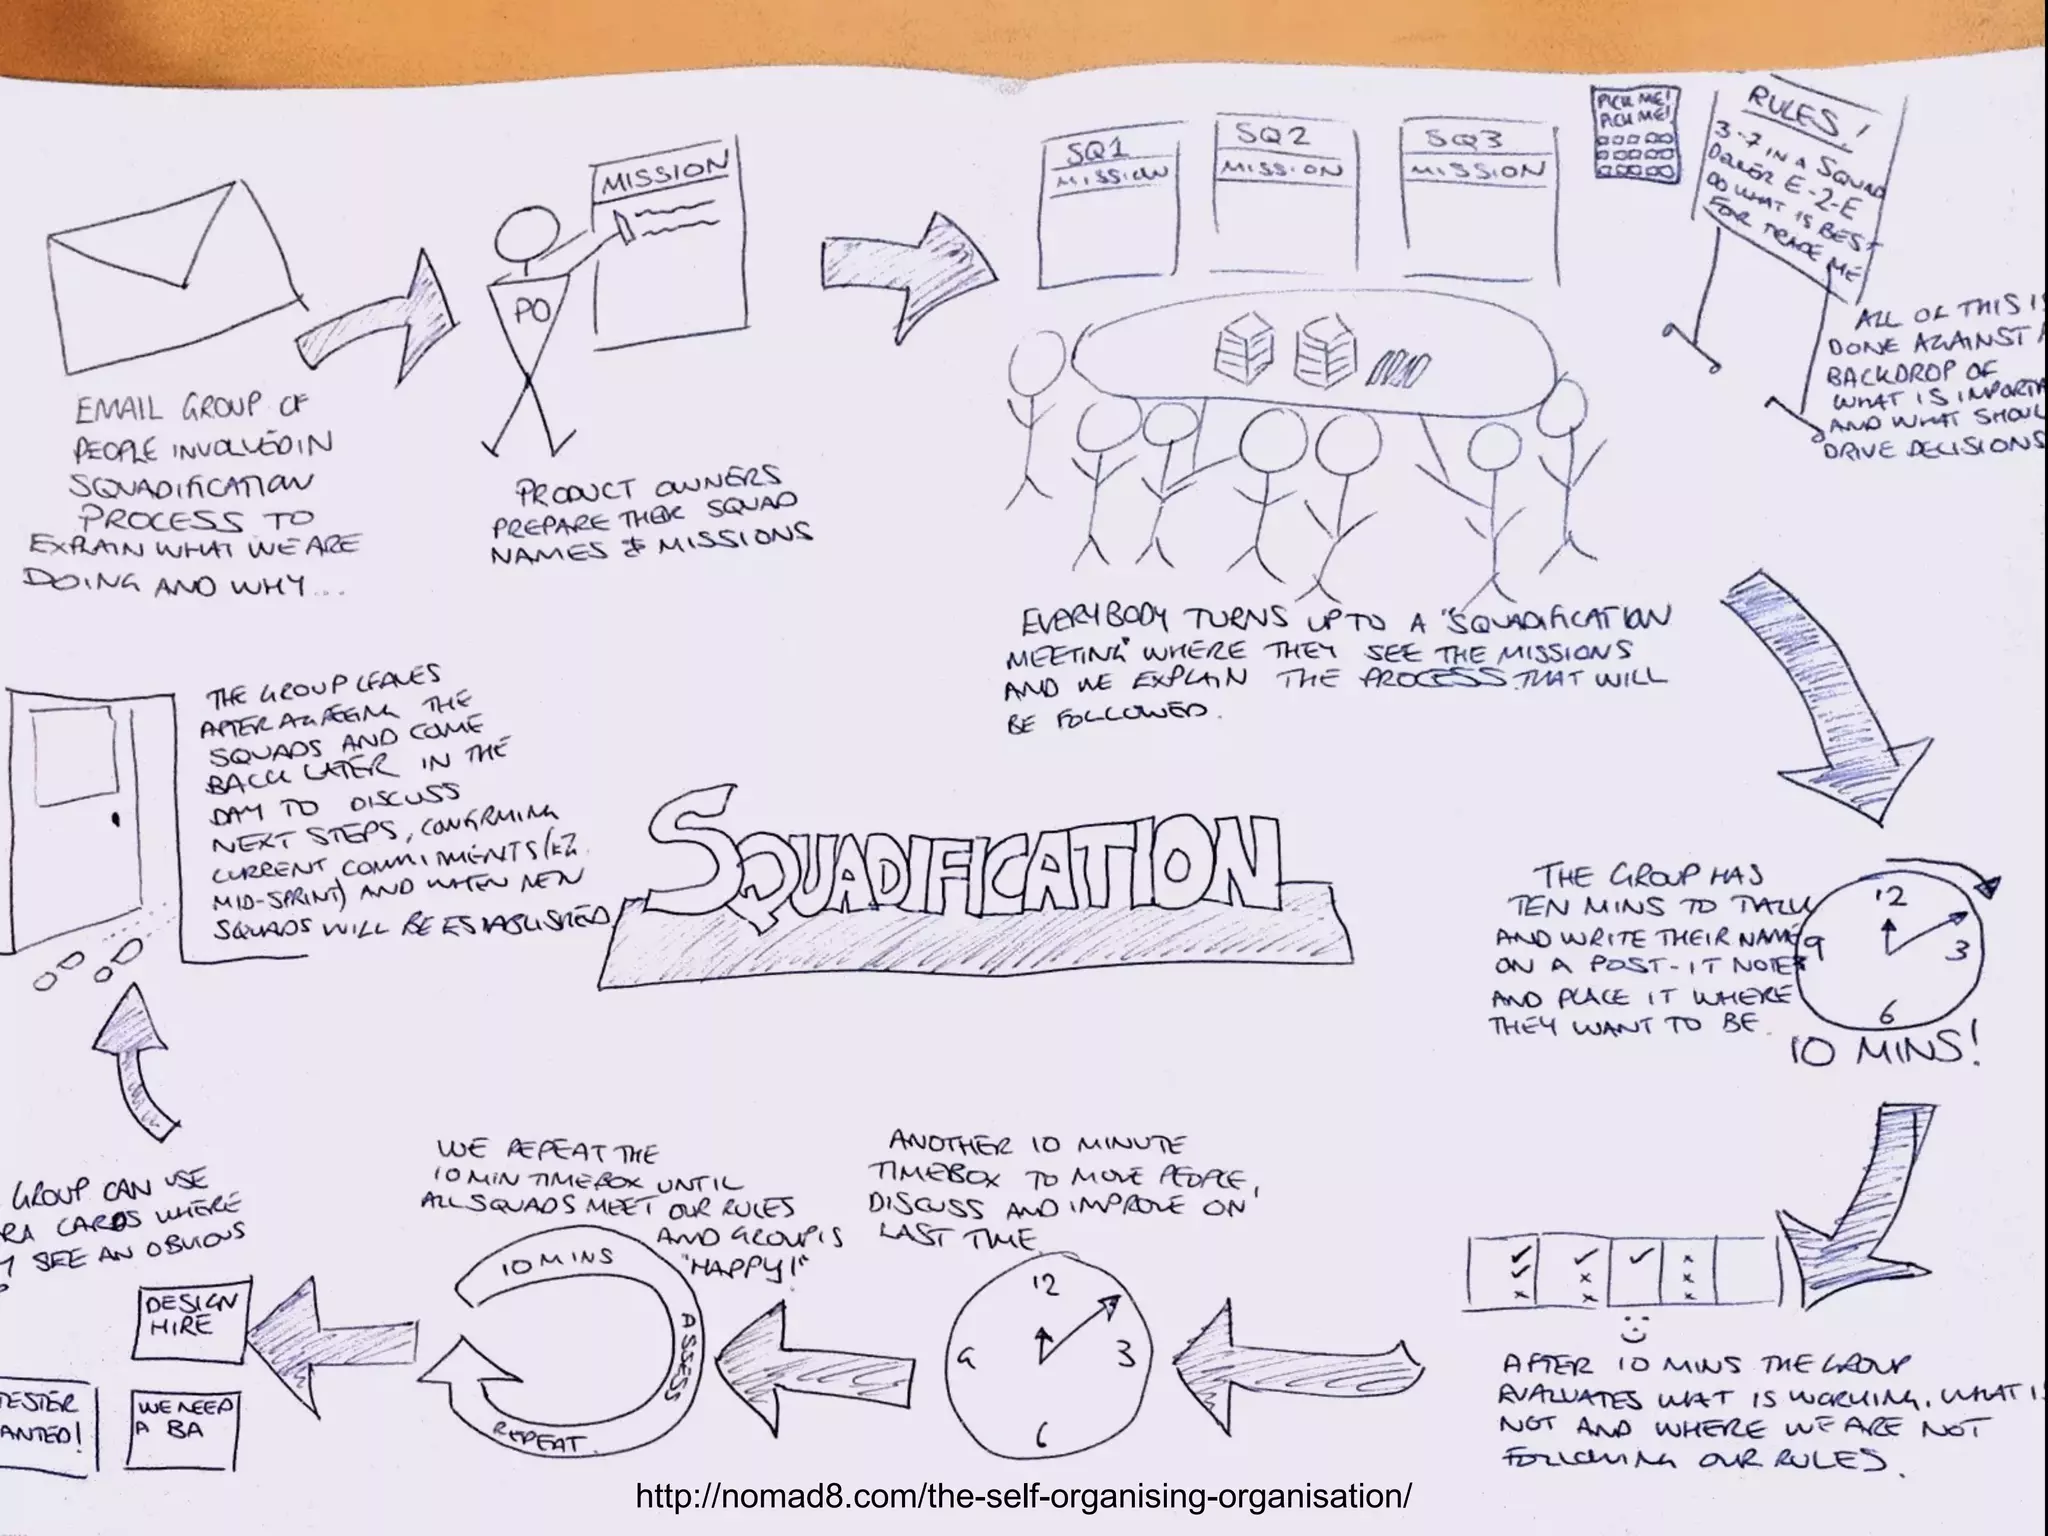 EMAIL GROUP OF
PEOPLE INVOLVED IN
SQUADIFICATION
PROCESS TO
EXPLAIN WHAT WE ARE
DOING AND WHY...
PO
MISSION
PRODUCT OWNERS
PREPARE THEIR SQUAD
NAMES & MISSIONS
SQ1
MISSION
SQ2
MISSION
SQ3
MISSION
PICK ME!
PICK ME!
RULES!
3-7 IN A SQUAD
DELIVER E-2-E
DO WHAT IS BEST
FOR TRADE ME
ALL OF THIS IS
DONE AGAINST A
BACKDROP OF
WHAT IS IMPORTA
AND WHAT SHOUL
DRIVE DECISIONS
EVERYBODY TURNS UP TO A "SQUADIFICATION
MEETING" WHERE THEY SEE THE MISSIONS
AND WE EXPLAIN THE PROCESS THAT WILL
BE FOLLOWED.
THE GROUP HAS
TEN MINS TO TALK
AND WRITE THEIR NAME
ON A POST-IT NOTE
AND PLACE IT WHERE
THEY WANT TO BE.
12
9 3
6
10 MINS!
AFTER 10 MINS THE GROUP
EVALUATES WHAT IS WORKING, WHAT IS
NOT AND WHERE WE ARE NOT
FOLLOWING OUR RULES.
ANOTHER 10 MINUTE
TIMEBOX TO MOVE PEOPLE,
DISCUSS AND IMPROVE ON
LAST TIME.
12
9 3
6
WE REPEAT THE
10 MIN TIMEBOX UNTIL
ALL SQUADS MEET OUR RULES
AND GROUP IS
"HAPPY!"
10 MINS
ASSESS
REPEAT.
GROUP CAN USE
RA CARDS WHERE
Y SEE AN OBVIOUS
DESIGN
HIRE
TESTER
ANTED!
WE NEED
A BA
THE GROUP LEAVES
AFTER AGREEING THE
SQUADS AND COME
BACK LATER IN THE
DAY TO DISCUSS
NEXT STEPS, CONFIRMING
CURRENT COMMITMENTS (EG.
MID-SPRINT) AND WHEN NEW
SQUADS WILL BE ESTABLISHED.
SQUADIFICATION
http://nomad8.com/the-self-organising-organisation/